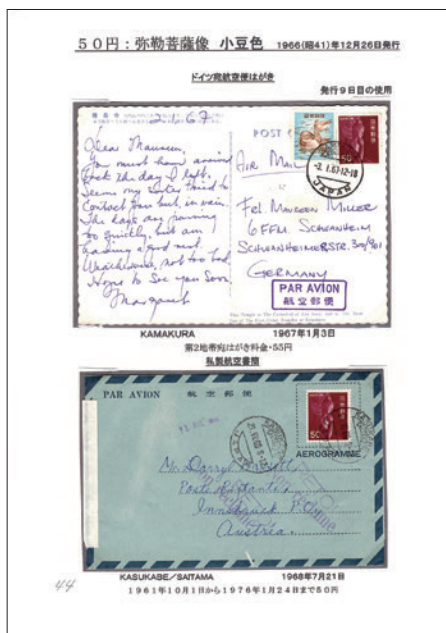 50円：弥勒菩薩像 小豆色 1966(昭41)年12月26日発行
ドイツ宛航空便はがき
発行9日目の使用
Dear Maureen,
You must have arrived
back the day I left.
Seems my sister tried to
contact you but in vain.
The days are passing
too quickly, but am
having a good rest.
Weatherwise, not too bad.
Hope to see you soon.
Margaret
POST
AIR MAIL
50
-3.1.67.12-18
JAPAN
Frl. MAUREEN MILLER
6 FFM. SCHWANHEIM
SCHWANHEIMERSTR.
GERMANY
PAR AVION
航空郵便
KAMAKURA 1967年1月3日
第2地帯宛はがき料金・55円
私製航空書簡
PAR AVION 航空郵便
50
AEROGRAMME
Mr. Darryl
Poste Restante,
Innsbruck P.O.,
Austria.
KASUKABE/SAITAMA 1968年7月21日
1961年10月1日から1976年1月24日まで50円
44